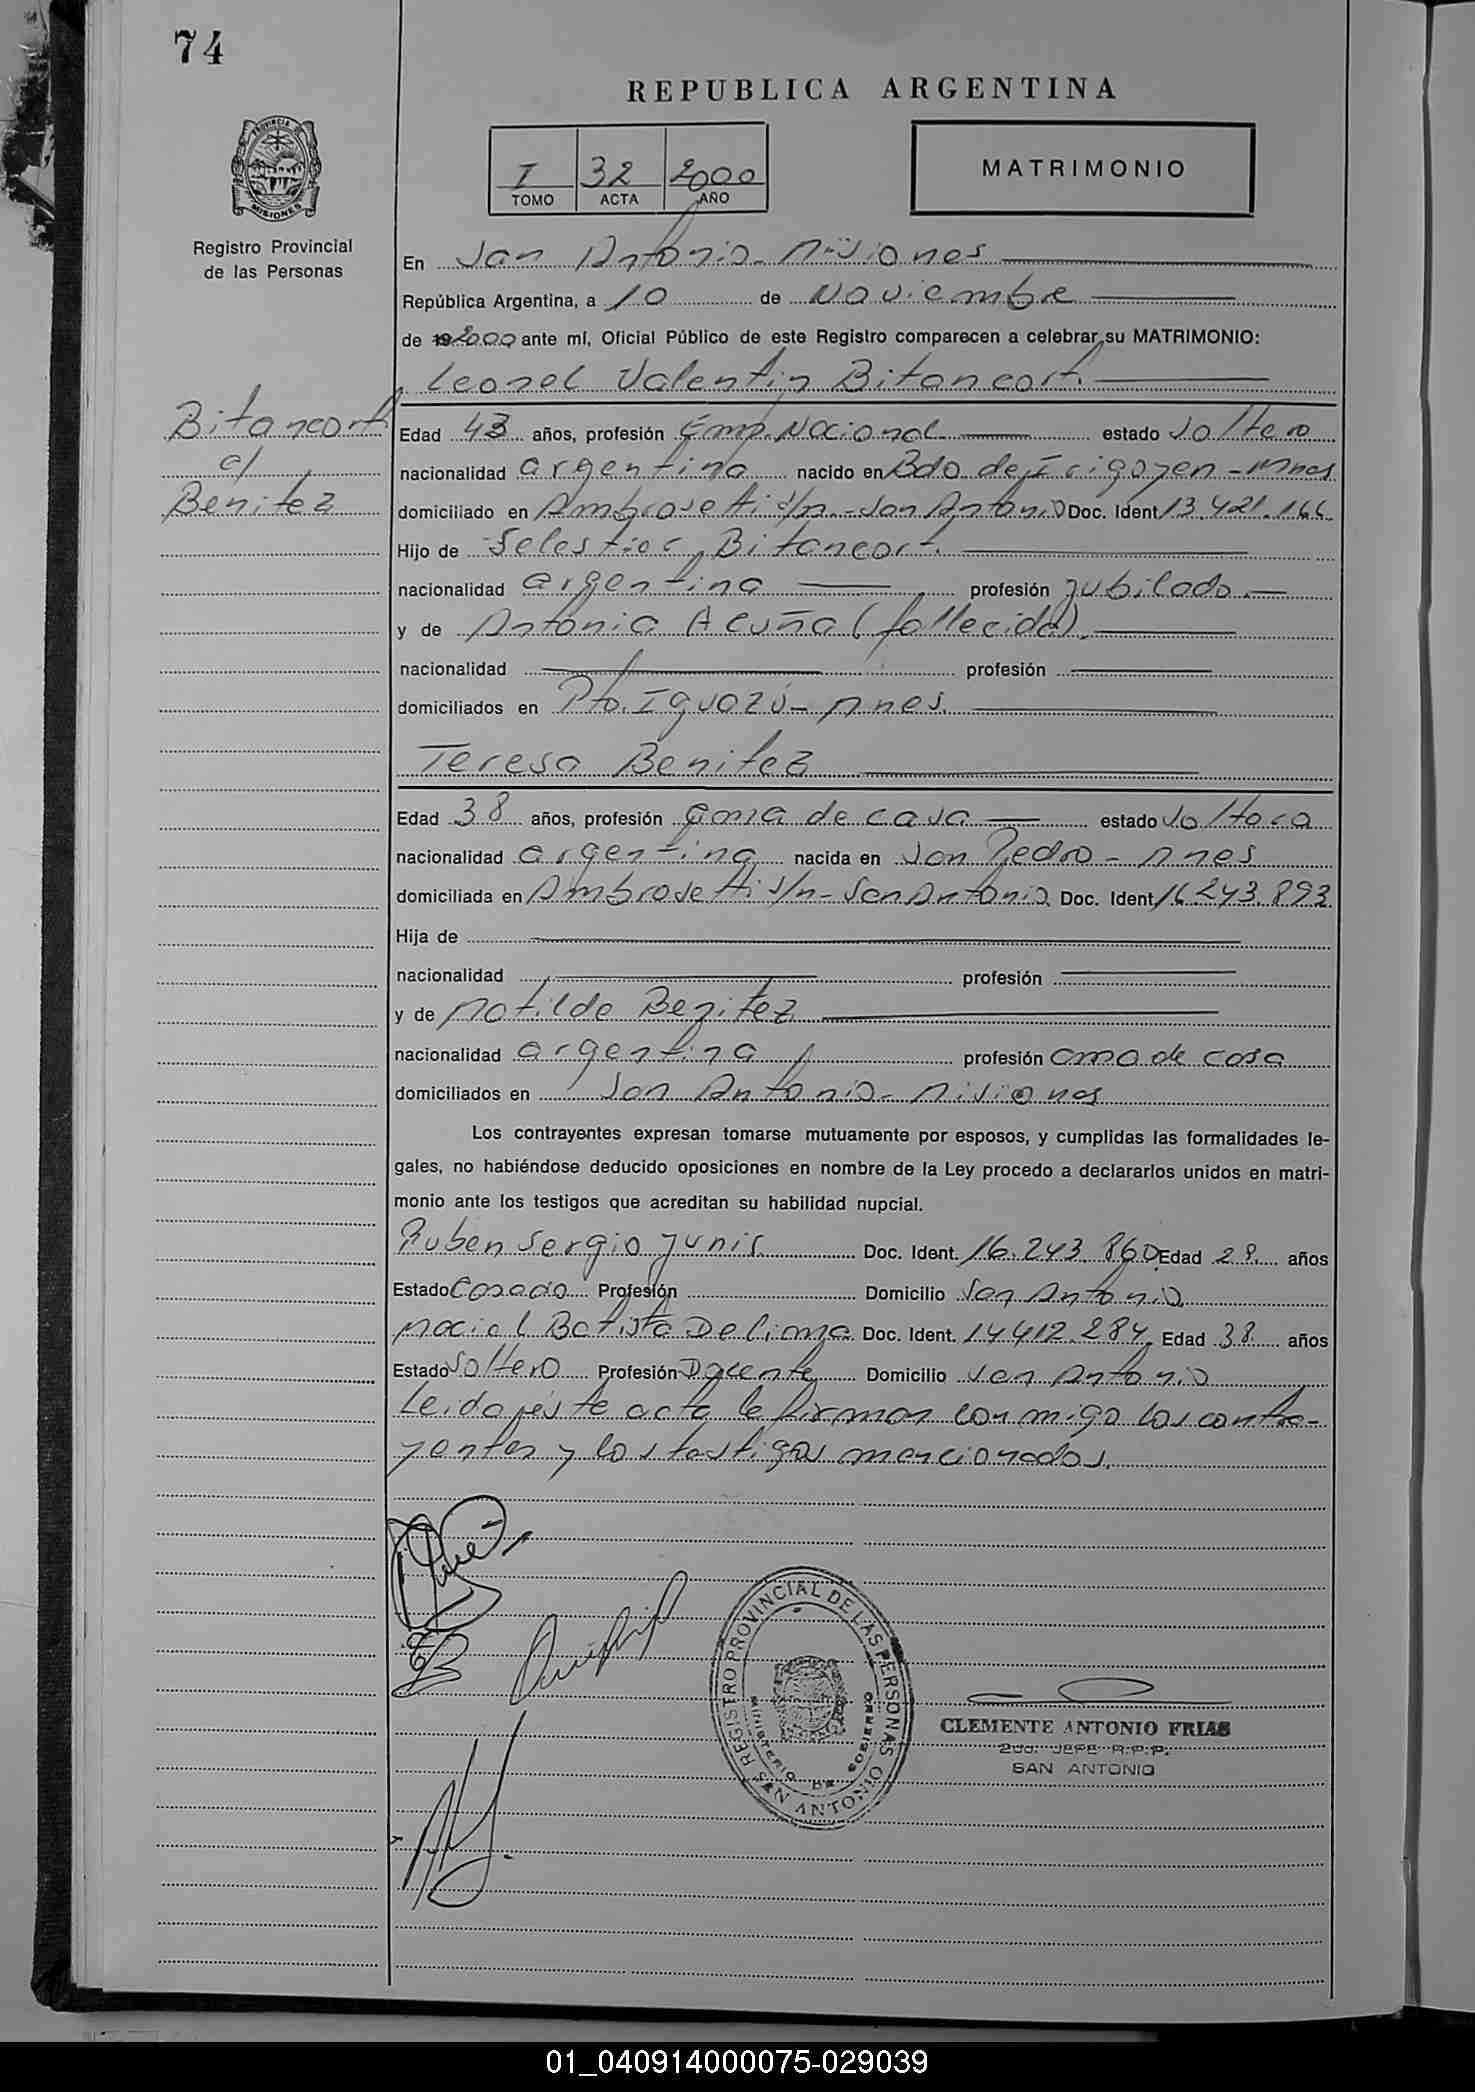 74
REPUBLICA ARGENTINA
PROVINCIA D
MISIONES
Registro Provincial
de las Personas
I 32 2000
TOMO ACTA AÑO
MATRIMONIO
En San Antonio - Misiones
República Argentina, a 10 de Noviembre
de 19 2000 ante mí, Oficial Público de este Registro comparecen a celebrar su MATRIMONIO:
Leonel Valentin Bitancort.
Bitancort
c/
Benitez
Edad 43 años, profesión Emp. Nacional estado Soltero
nacionalidad argentina nacido en Bdo de Irigoyen - Mnes
domiciliado en Ambrosetti s/n - San Antonio Doc. Ident 13.421.166
Hijo de Bitancort.
nacionalidad argentina profesión jubilado.
y de Antonia Acuña (fallecida).
nacionalidad profesión
domiciliados en Pto. Iguazú - Mnes.
Teresa Benitez
Edad 38 años, profesión ama de casa estado Soltera
nacionalidad argentina nacida en San Pedro - Mnes
domiciliada en Ambrosetti s/n - San Antonio. Doc. Ident 16.243.893
Hija de
nacionalidad profesión
y de Matilde Benitez
nacionalidad argentina profesión ama de casa
domiciliados en San Antonio - Misiones
Los contrayentes expresan tomarse mutuamente por esposos, y cumplidas las formalidades le-
gales, no habiéndose deducido oposiciones en nombre de la Ley procedo a declararlos unidos en matri-
monio ante los testigos que acreditan su habilidad nupcial.
Ruben Sergio Junis Doc. Ident. 16.243.860 Edad 28. años
Estado Casado Profesión Domicilio San Antonio
Macial Batista De Lima Doc. Ident. 14.412.284 Edad 38. años
Estado Soltero Profesión Docente Domicilio San Antonio
Leida este acta la firman conmigo los contra-
yentes y los testigos mencionados.
REGISTRO PROVINCIAL DE LAS PERSONAS
MINISTERIO DE GOBIERNO
SAN ANTONIO
CLEMENTE ANTONIO FRIAS
2do. JEFE R.P.P.
SAN ANTONIO
01_040914000075-029039